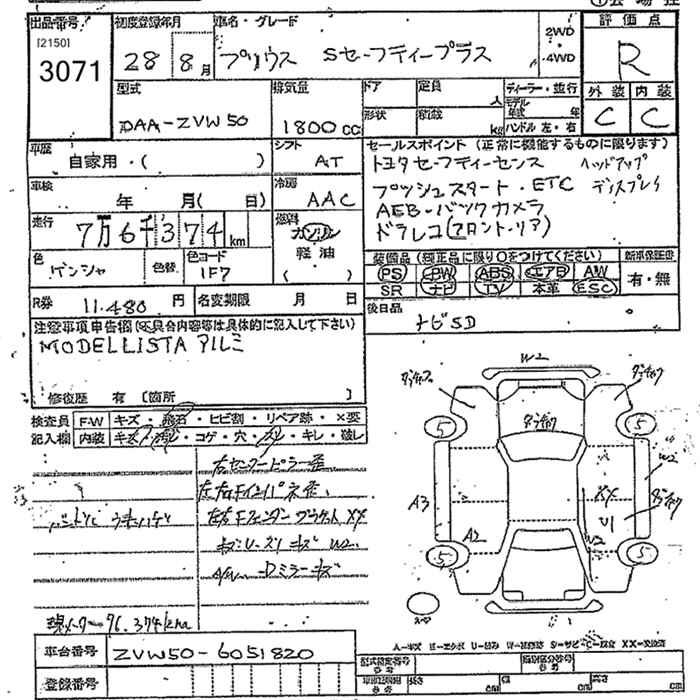 出品番号 初度登録年月 車名・グレード 2WD 評価点
[2150]
3071
28 8月 プリウス Sセーフティープラス ・4WD R
型式 排気量 ドア 定員 人 ディーラー・並行 外装 内装
DAA-ZVW50 1800cc 形状 積載 kg モデル年式 年 C C
ハンドル 左・右
車歴 シフト セールスポイント (正常に機能するものに限ります)
自家用・( ) AT トヨタセーフティーセンス ヘッドアップ
車検 冷房 プッシュスタート・ETC ディスプレイ
年 月( 日) AAC AEB-バックカメラ
走行 燃料 ドラレコ(フロント・リア)
7万6千374km ガソリン
軽油
( )
色 色替 色コード 装備品 (純正品に限り○をつけてください) 新車保証書
ゲンシャ 1F7 PS PW ABS エアB AW 有・無
SR ナビ TV 本革 ESC
R券 11.480円 名変期限 月 日 後日品
ナビSD
注意事項申告欄 (不具合内容等は具体的に記入して下さい)
MODELLISTA アルミ
修復歴 有 [箇所 ]
検査員 F・W キズ・飛石・ヒビ割・リペア跡・×要
記入欄 内装 キズ・汚れ・コゲ・穴・スレ・キレ・破し
右センターピラー歪
W2
5
5
A3
A2
XX
U1
W2
W2
5
5
現メーター76.374km
A-キズ E-エクボ U-凹み W-補修跡 S-サビ C-腐食 XX-交換済
車台番号 ZVW50-6051820
登録番号
型式指定番号 参考 類別区分番号 参考
長さ cm 幅 cm 高さ cm